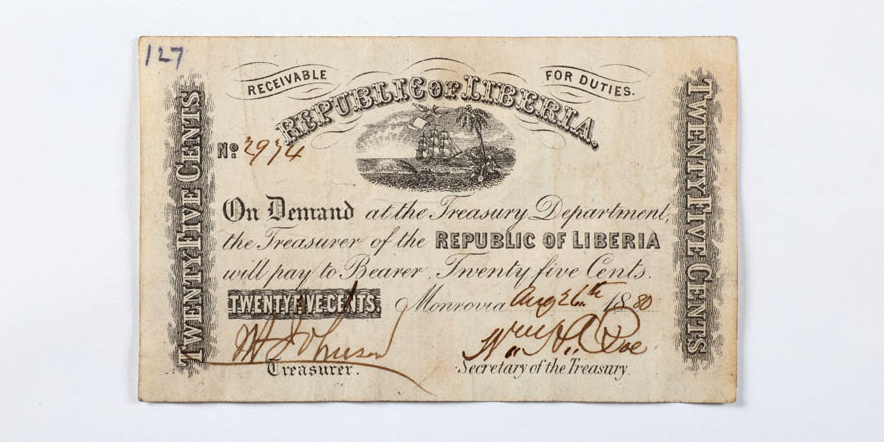 127
RECEIVABLE FOR DUTIES.
REPUBLIC OF LIBERIA.
TWENTY FIVE CENTS
No
On Demand at the Treasury Department,
the Treasurer of the REPUBLIC OF LIBERIA
will pay to Bearer, Twenty five Cents.
TWENTY FIVE CENTS. Monrovia Aug 26th 1880
Johnson
Treasurer. Secretary of the Treasury.
TWENTY FIVE CENTS